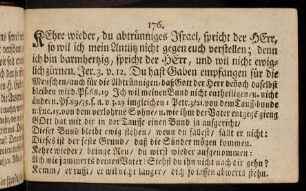 176.
KEhre wieder, du abtrünniges Israel, spricht der HErr,
so wil ich mein Antlitz nicht gegen euch verstellen; denn
ich bin barmhertzig, spricht der HErr, und wil nicht ewig-
lich zürnen. Jer. 3. v. 12. Du hast Gaben empfangen für die
Menschen/ auch für die Abtrünnigen/ daß Gott der Herr dennoch daselbst
bleiben wird. Ps. 68. 19 Ich wil meinen Bund nicht entheiligen u. nicht
ändern Ps. 89/35. f. a. v. 3. 29 imgleichen 1 Petr. 3/21. von dem Tauffbunde
u. Luc. 15. v. 20. von dem verlohrne Sohne/ wie ihm der Vater entgegen gieng
GOtt hat mit dir in der Tauffe einen Bund ja aufgericht/
Dieser Bund bleibt ewig stehen/ wenn du fällest/ fällt er nicht:
Dieses ist der feste Grund/ daß die Sünder mögen kommen.
Kehre wieder/ bringe Reu/ du wirst wieder angenommen.
Ach wie jammerts deinen Vater! Siehst du ihn nicht nach dir gehn?
Komm/ er rufft/ er wil nicht langer/ dich so lassen abwerts stehn.